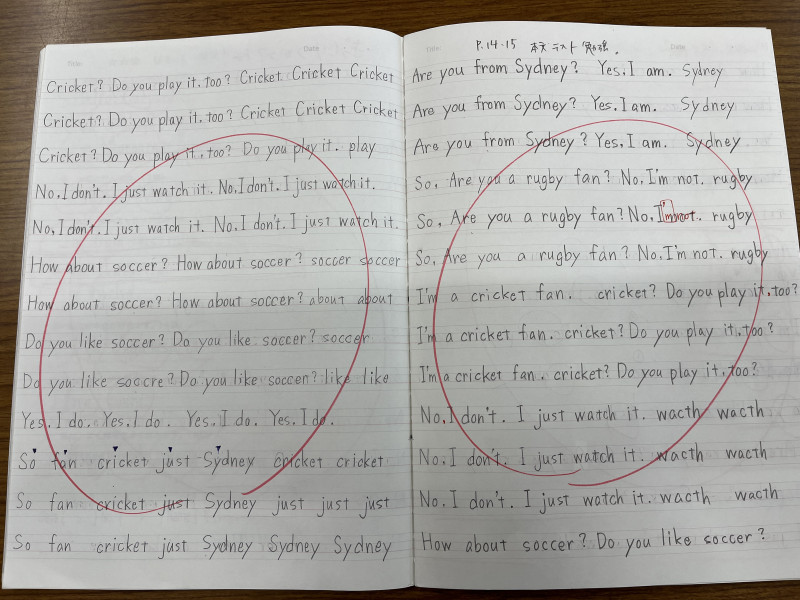 Title
Date
Cricket? Do you play it, too? Cricket Cricket Cricket
Cricket? Do you play it, too? Cricket Cricket Cricket
Cricket? Do you play it, too? Do you play it. play
No, I don't. I just watch it. No, I don't. I just watch it.
No, I don't. I just watch it. No, I don't. I just watch it.
How about soccer? How about soccer? soccer soccer
How about soccer? How about soccer? about about
Do you like soccer? Do you like soccer? soccer
Do you like soccre? Do you like soccer? like like
Yes, I do. Yes, I do. Yes, I do. Yes, I do.
So fan cricket just Sydney cricket cricket
So fan cricket just Sydney just just just
So fan cricket just Sydney Sydney Sydney
Title
P.14-15 本文テスト勉強.
Date
Are you from Sydney? Yes, I am. Sydney
Are you from Sydney? Yes, I am. Sydney
Are you from Sydney? Yes, I am. Sydney
So, Are you a rugby fan? No, I'm not. rugby
So, Are you a rugby fan? No, I'm not. rugby
So, Are you a rugby fan? No, I'm not. rugby
I'm a cricket fan. cricket? Do you play it, too?
I'm a cricket fan. cricket? Do you play it, too?
I'm a cricket fan. cricket? Do you play it, too?
No, I don't. I just watch it. wacth wacth
No, I don't. I just watch it. wacth wacth
No, I don't. I just watch it. wacth wacth
How about soccer? Do you like soccer?